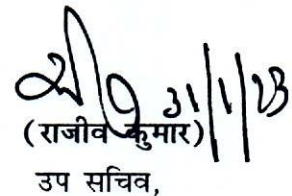 31/1/23
(राजीव कुमार)
उप सचिव,